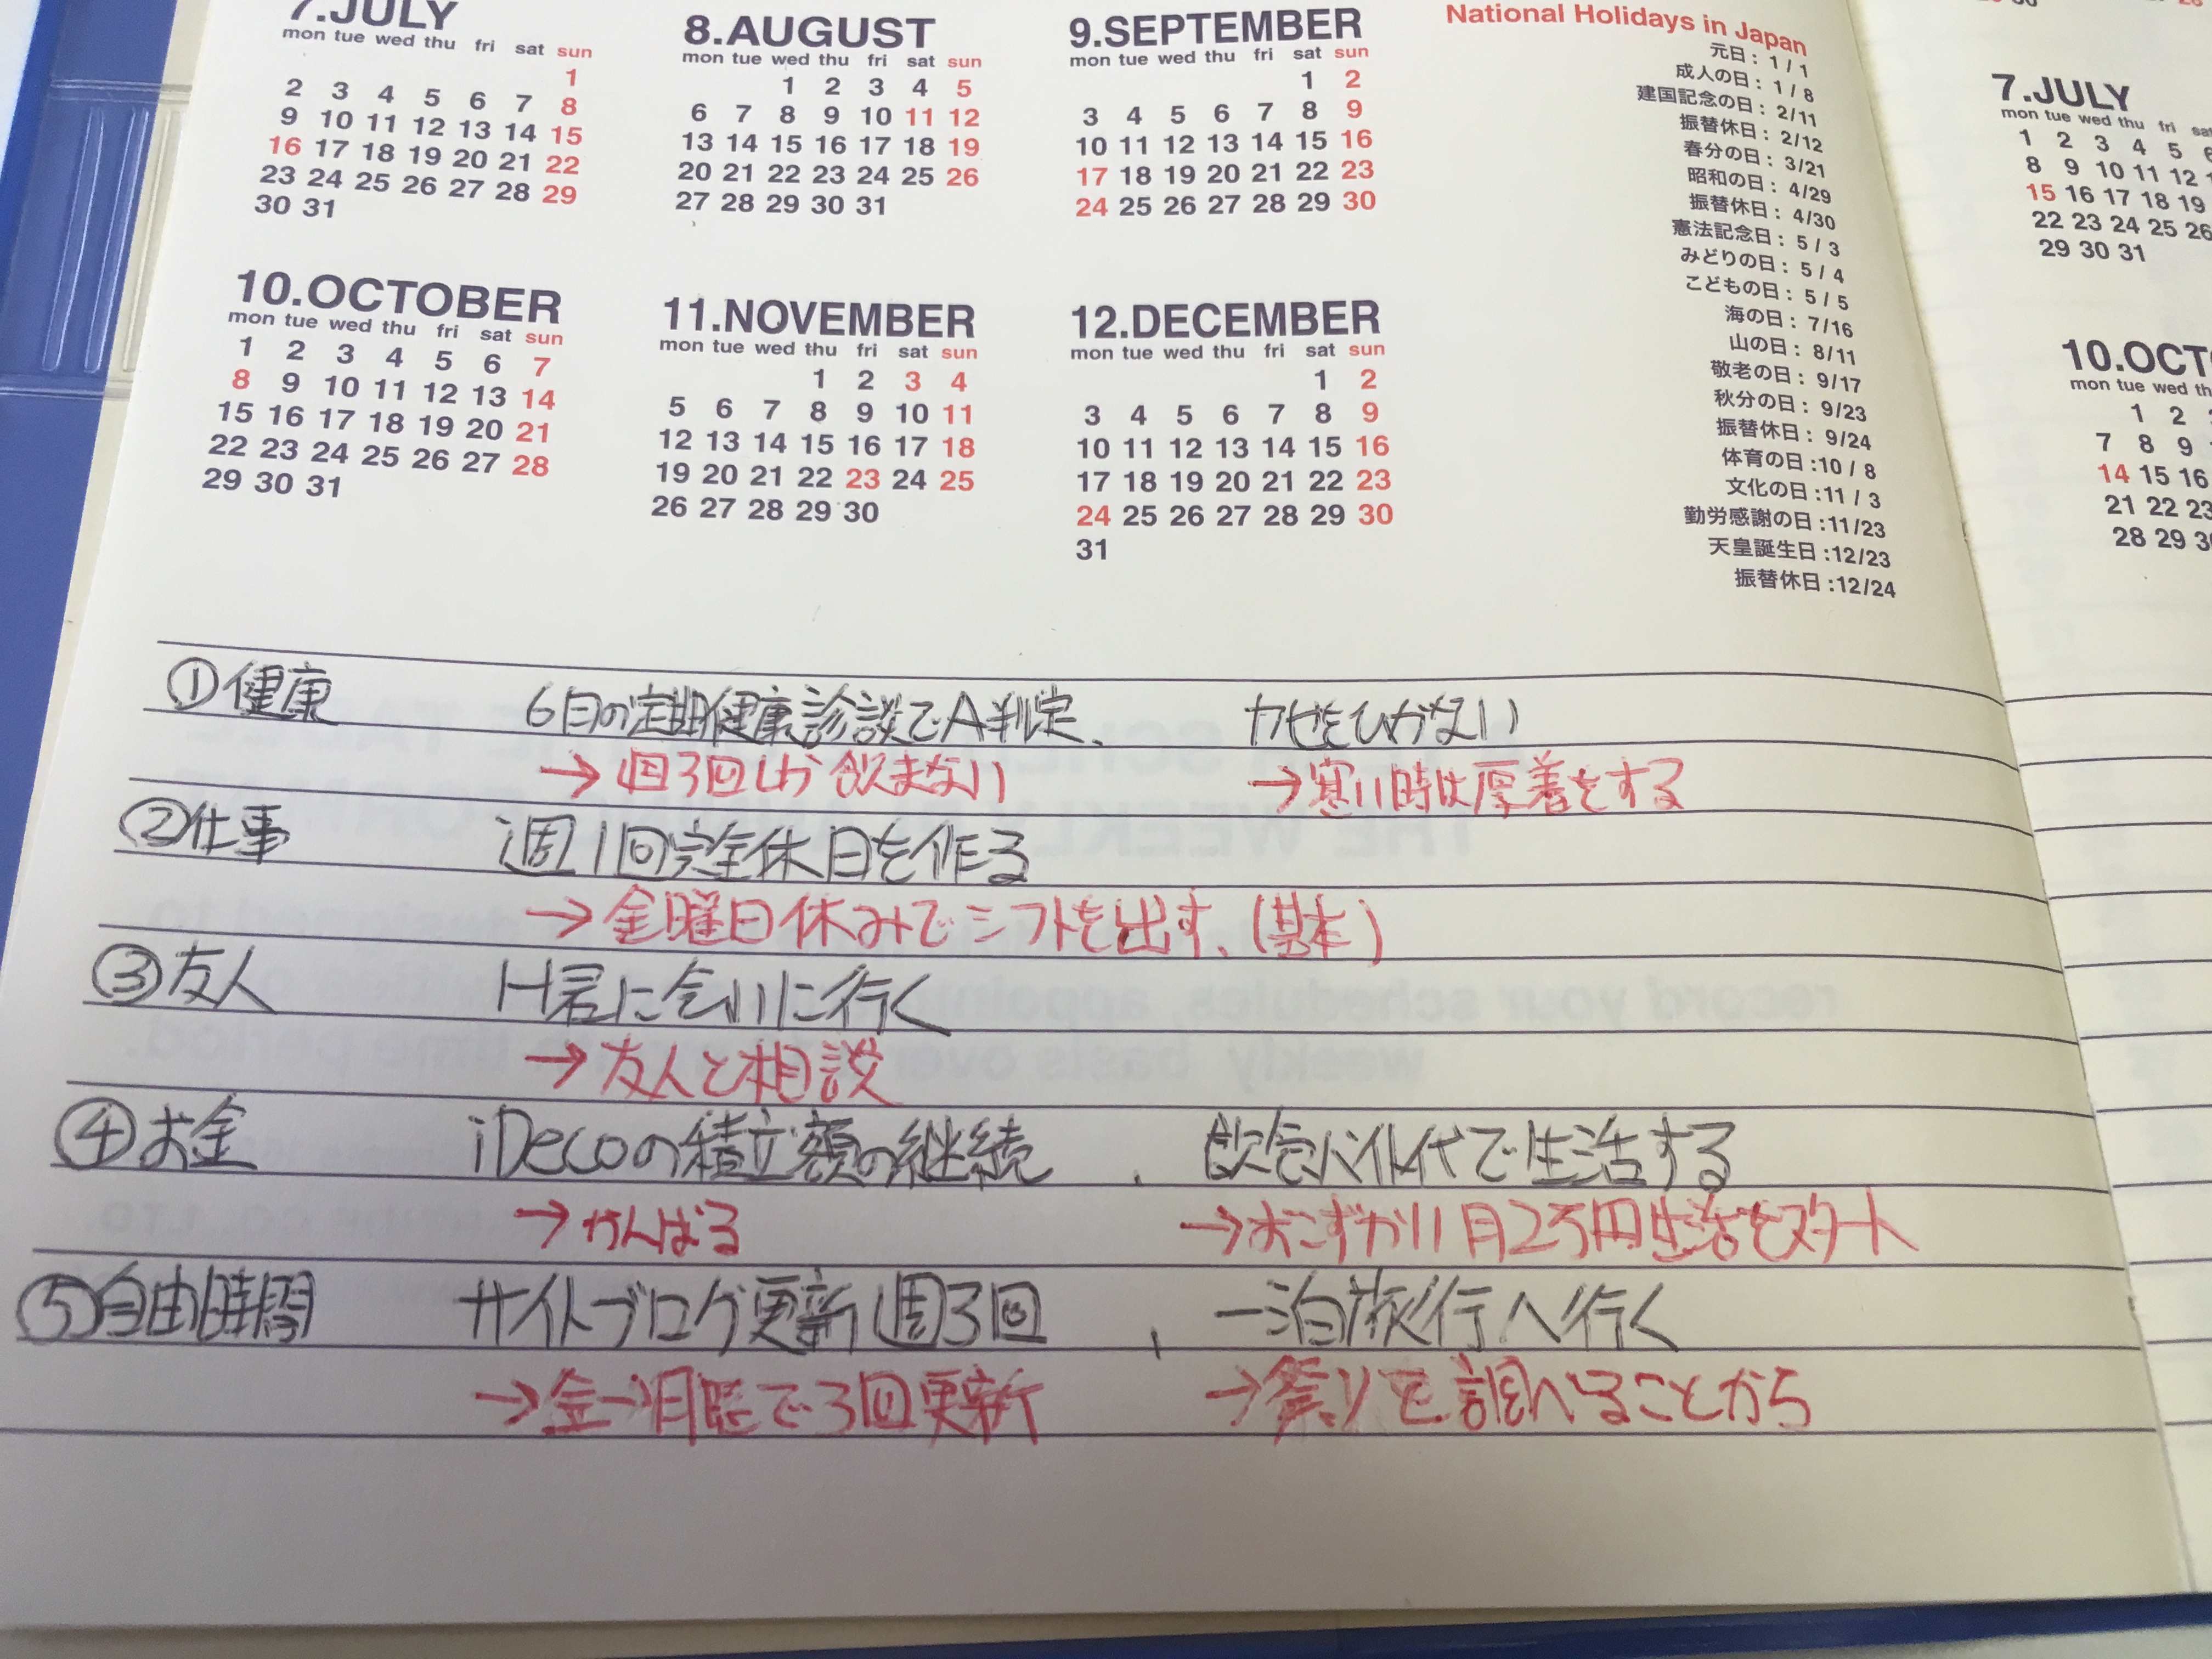 7.JULY
mon tue wed thu fri sat sun
1
2 3 4 5 6 7 8
9 10 11 12 13 14 15
16 17 18 19 20 21 22
23 24 25 26 27 28 29
30 31
8.AUGUST
mon tue wed thu fri sat sun
1 2 3 4 5
6 7 8 9 10 11 12
13 14 15 16 17 18 19
20 21 22 23 24 25 26
27 28 29 30 31
9.SEPTEMBER
mon tue wed thu fri sat sun
1 2
3 4 5 6 7 8 9
10 11 12 13 14 15 16
17 18 19 20 21 22 23
24 25 26 27 28 29 30
National Holidays in Japan
元日: 1 / 1
成人の日: 1 / 8
建国記念の日: 2/11
振替休日: 2/12
春分の日: 3/21
昭和の日: 4/29
振替休日: 4/30
憲法記念日: 5 / 3
みどりの日: 5 / 4
こどもの日: 5 / 5
海の日: 7/16
山の日: 8/11
敬老の日: 9/17
秋分の日: 9/23
振替休日: 9/24
体育の日:10 / 8
文化の日:11 / 3
勤労感謝の日:11/23
天皇誕生日:12/23
振替休日:12/24
10.OCTOBER
mon tue wed thu fri sat sun
1 2 3 4 5 6 7
8 9 10 11 12 13 14
15 16 17 18 19 20 21
22 23 24 25 26 27 28
29 30 31
11.NOVEMBER
mon tue wed thu fri sat sun
1 2 3 4
5 6 7 8 9 10 11
12 13 14 15 16 17 18
19 20 21 22 23 24 25
26 27 28 29 30
12.DECEMBER
mon tue wed thu fri sat sun
1 2
3 4 5 6 7 8 9
10 11 12 13 14 15 16
17 18 19 20 21 22 23
24 25 26 27 28 29 30
31
①健康 6月の定期健康診談でA判定、 カゼをひかない
→週3回しか飲まない →寒い時は厚着をする
②仕事 週1回完全休日を作る
→金曜日休みでシフトを出す、(基本)
③友人 H君に会いに行く
→友人と相談
④お金 iDecoの積立額の継続、飲食バイト代で生活する
→がんばる →おこずかい月2万円生活をスタート
⑤自由時間 サイトブログ更新週3回、一泊旅行へ行く
→金→月曜で3回更新 →祭りを調べることから
7.JULY
mon tue wed thu fri
1 2 3 4 5
8 9 10 11 12
15 16 17 18 19
22 23 24 25 26
29 30 31
mon tue wed
1 2
7 8 9
14 15 16
21 22 23
28 29